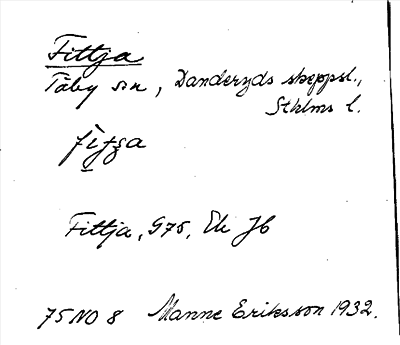 Fittja
Täby sn, Danderyds skeppsl.,
Sthlms l.
Fittja, 975, Ek Jb
75 NO 8 Manne Eriksson 1932.